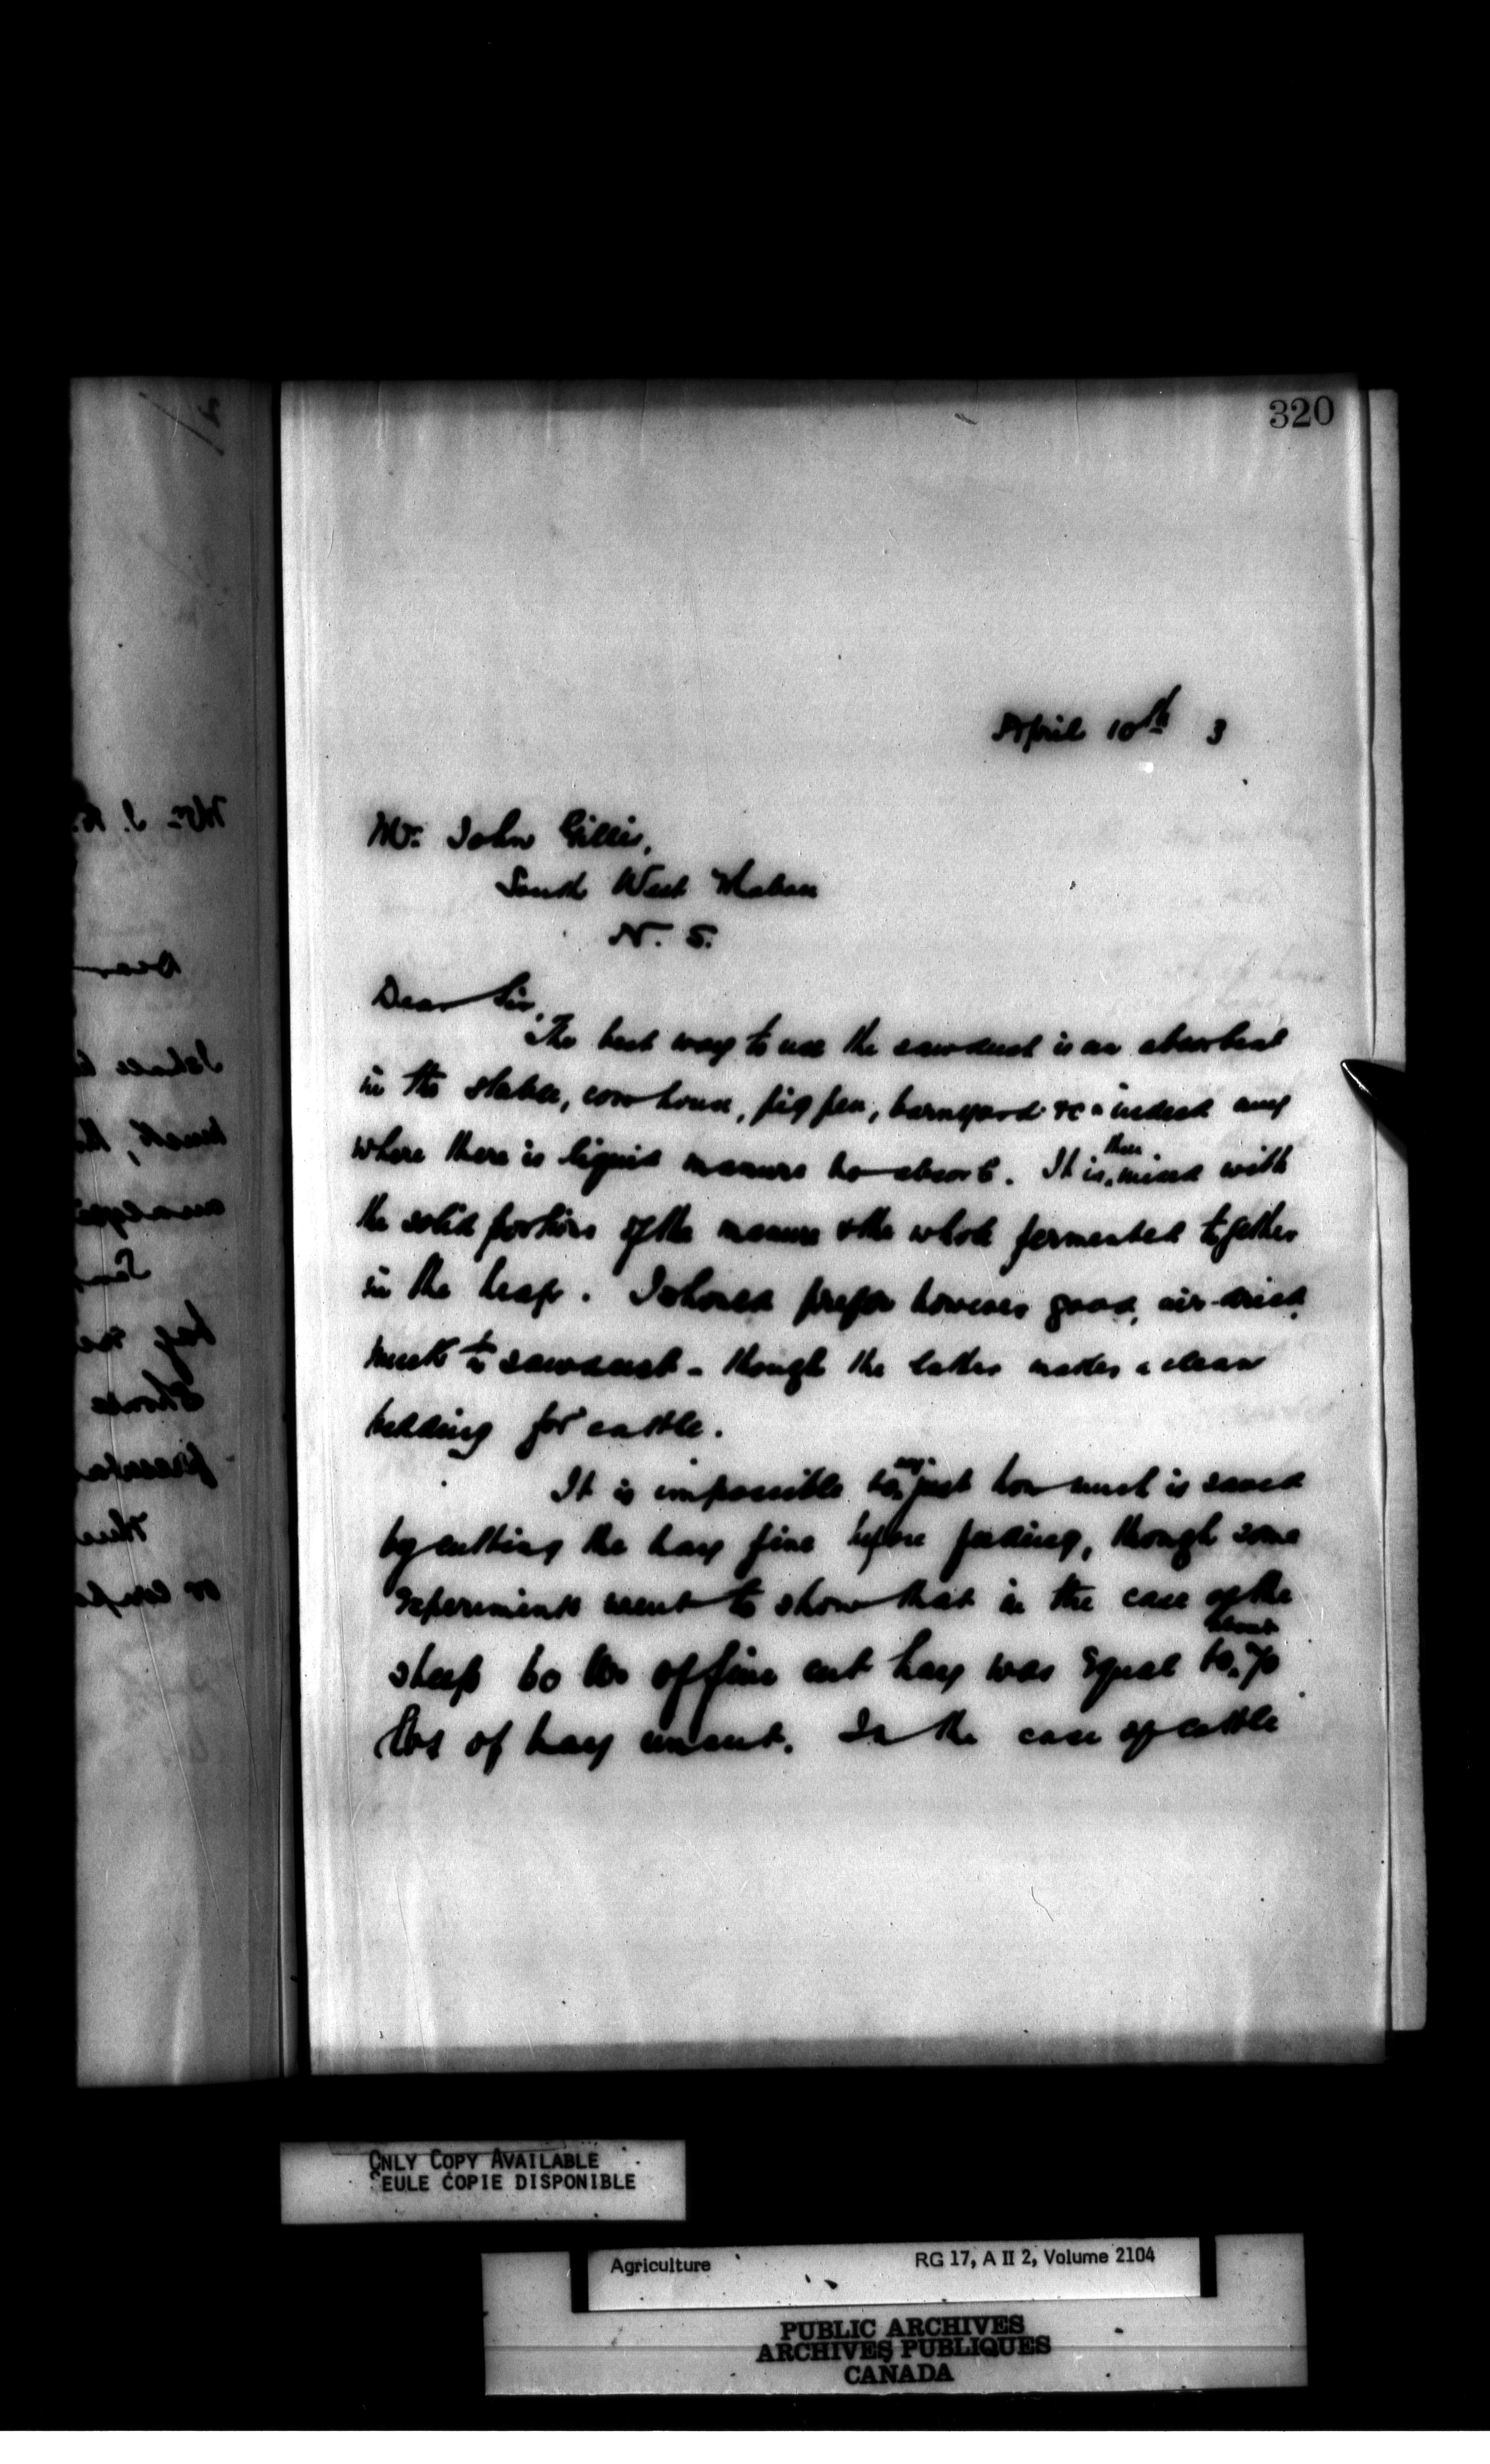 320
April 10th 3
Mr. John Gillis,
South West Mabou
N. S.
Dear Sir,
The best way to use the sawdust is as absorbent
in the stable, cow house, pig pen, barnyard &c - indeed any
where there is liquid manure to absorb. It is then mixed with
the solid portions of the manure & the whole fermented together
in the heap. I should prefer however good, air-dried
muck to sawdust - though the latter makes a clean
bedding for cattle.
It is impossible to say just how much is saved
by cutting the hay fine before feeding, though some
experiments went to show that in the case of the
sheep 60 lbs of fine cut hay was equal to about 70
lbs of hay uncut. In the case of cattle
ONLY COPY AVAILABLE
SEULE COPIE DISPONIBLE
Agriculture RG 17, A II 2, Volume 2104
PUBLIC ARCHIVES
ARCHIVES PUBLIQUES
CANADA